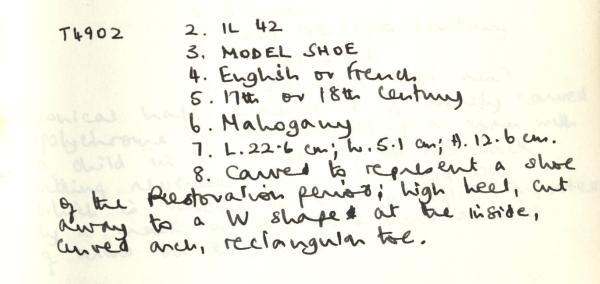 T4902 2. IL 42
3. MODEL SHOE
4. English or French
5. 17th or 18th Century
6. Mahogany
7. L. 22.6 cm; W. 5.1 cm; H. 12.6 cm.
8. Carved to represent a shoe
of the Restoration period; high heel, cut
away to a W shape at the inside,
curved arch, rectangular toe.